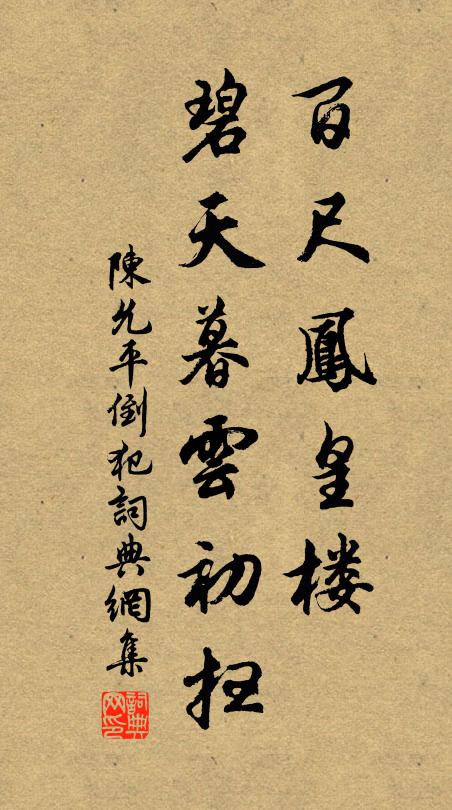 百尺鳳皇楼
碧天暮雲初扫
陳允平倒犯詞典網集
詞典网印